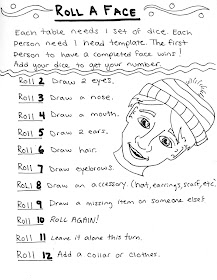 ROLL A FACE
Each table needs 1 set of dice. Each
person need 1 head template. The first
person to have a completed face wins!
Add your dice to get your number.
Roll 2 Draw 2 eyes.
Roll 3 Draw a nose.
Roll 4 Draw a mouth.
Roll 5 Draw 2 ears.
Roll 6 Draw hair.
Roll 7 Draw eyebrows.
Roll 8 Draw an accessory. (hat, earrings, scarf, etc)
Roll 9 Draw a missing item on someone else!
Roll 10 ROLL AGAIN!
Roll 11 Leave it alone this turn.
Roll 12 Add a collar or clothes.